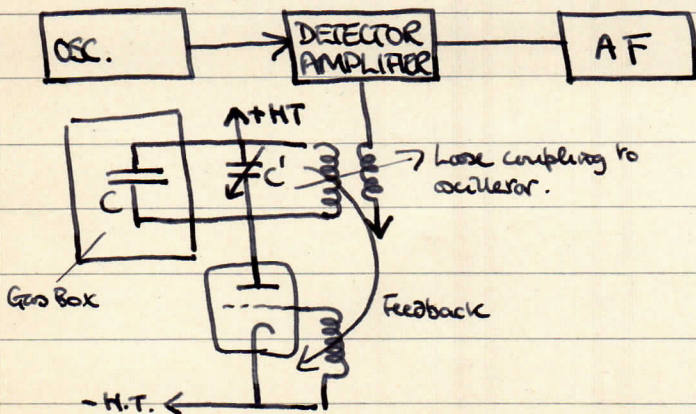 OSC.
DETECTOR
AMPLIFIER
AF
+HT
C
C'
Loose coupling to
oscillator.
Gas Box
Feedback
-H.T.